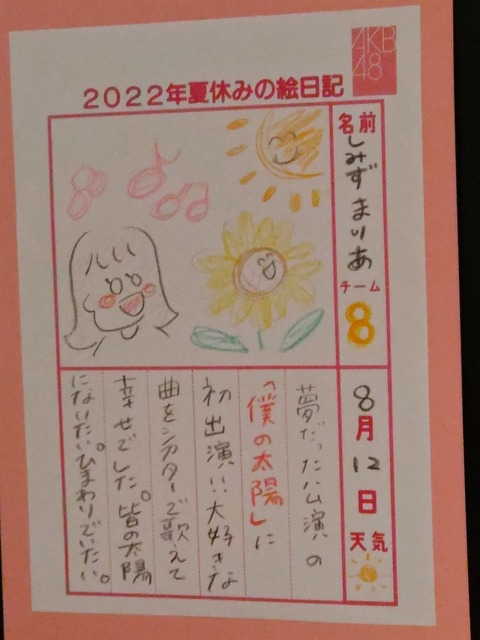 AKB
48
2022年夏休みの絵日記
名前
しみずまりあ
チーム
8
8月12日
天気
夢だった公演の
「僕の太陽」に
初出演!!大好きな
曲をシアターで歌えて
幸せでした。皆の太陽
になりたい。ひまわりでいたい。